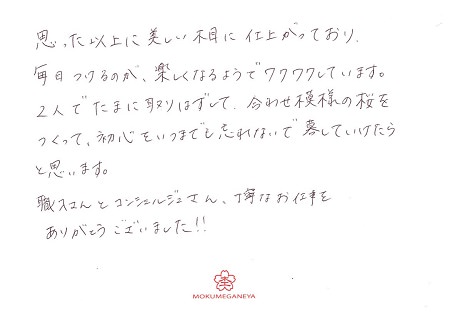 思った以上に美しい木目に仕上がっており、
毎日つけるのが、楽しくなるようでワクワクしています。
2人でたまに取りはずして、合わせ模様の桜を
つくって、初心をいつまでも忘れないで暮していけたら
と思います。
職人さんとコンシェルジュさん、丁寧なお仕事を
ありがとうございました!!
杢
MOKUMEGANEYA